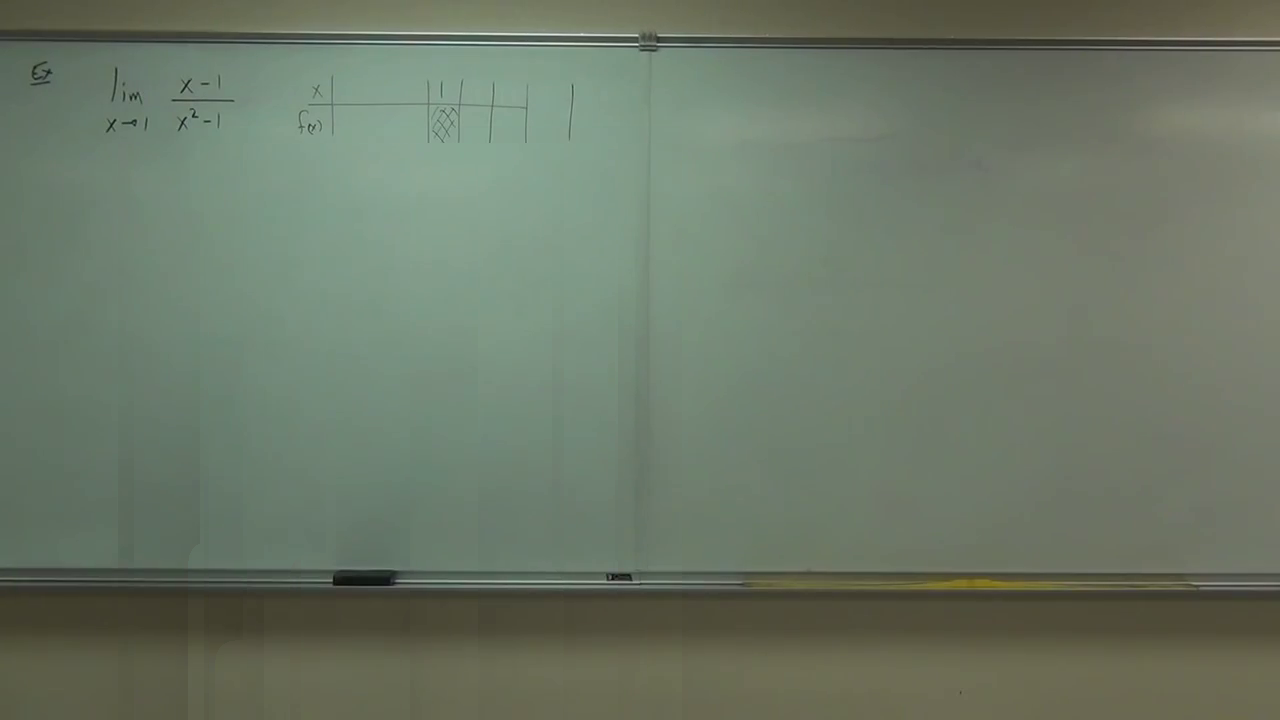 Ex lim x→1 x-1 / x²-1
x 1
f(x)